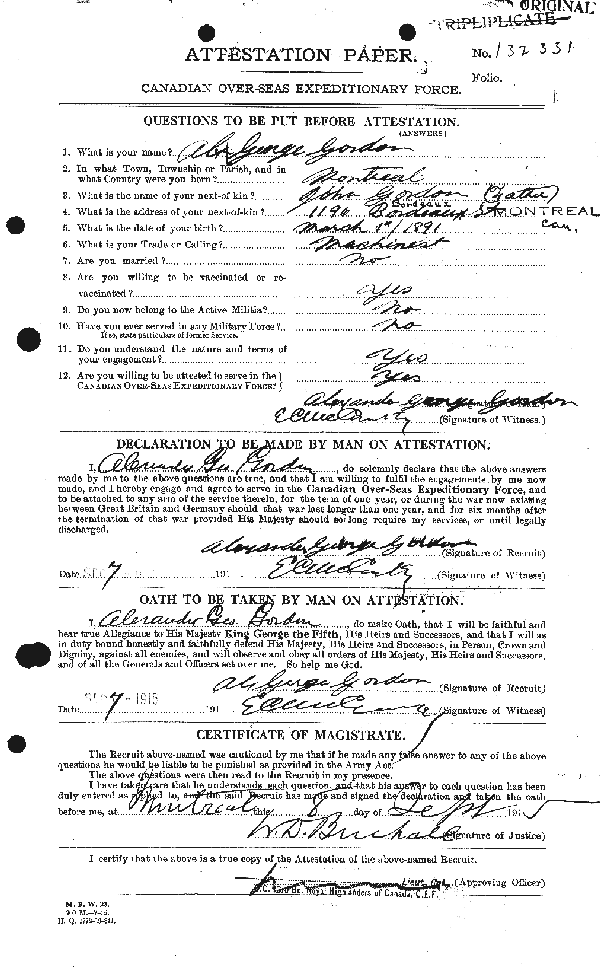 ORIGINAL
TRIPLIPLICATE
ATTESTATION PAPER.
No. 132331
Folio.
CANADIAN OVER-SEAS EXPEDITIONARY FORCE.
QUESTIONS TO BE PUT BEFORE ATTESTATION.
(ANSWERS)
1. What is your name? Alex George Gordon
2. In what Town, Township or Parish, and in
what Country were you born? Montreal
3. What is the name of your next-of kin? John Gordon (Father)
4. What is the address of your next-of-kin? 1190 Bordeaux St MONTREAL
Can.
5. What is the date of your birth? March 1st 1891
6. What is your Trade or Calling? Machinest
7. Are you married? No
8. Are you willing to be vaccinated or re-
vaccinated? Yes
9. Do you now belong to the Active Militia? No
10. Have you ever served in any Military Force? No
If so, state particulars of former Service.
11. Do you understand the nature and terms of
your engagement? Yes
12. Are you willing to be attested to serve in the Yes
CANADIAN OVER-SEAS EXPEDITIONARY FORCE?
Alexander George Gordon (Signature of Man)
(Signature of Witness)
DECLARATION TO BE MADE BY MAN ON ATTESTATION.
I, Alexander Geo Gordon, do solemnly declare that the above answers
made by me to the above questions are true, and that I am willing to fulfil the engagements by me now
made, and I hereby engage and agree to serve in the Canadian Over-Seas Expeditionary Force, and
to be attached to any arm of the service therein, for the term of one year, or during the war now existing
between Great Britain and Germany should that war last longer than one year, and for six months after
the termination of that war provided His Majesty should so long require my services, or until legally
discharged.
Alexander George Gordon (Signature of Recruit)
Date SEP 7 191 (Signature of Witness)
OATH TO BE TAKEN BY MAN ON ATTESTATION.
I, Alexander Geo Gordon, do make Oath, that I will be faithful and
bear true Allegiance to His Majesty King George the Fifth, His Heirs and Successors, and that I will as
in duty bound honestly and faithfully defend His Majesty, His Heirs and Successors, in Person, Crown and
Dignity, against all enemies, and will observe and obey all orders of His Majesty, His Heirs and Successors,
and of all the Generals and Officers set over me. So help me God.
Alx George Gordon (Signature of Recruit)
Date SEP 7 - 1915 191 (Signature of Witness)
CERTIFICATE OF MAGISTRATE.
The Recruit above-named was cautioned by me that if he made any false answer to any of the above
questions he would be liable to be punished as provided in the Army Act.
The above questions were then read to the Recruit in my presence.
I have taken care that he understands each question, and that his answer to each question has been
duly entered as replied to, and the said Recruit has made and signed the declaration and taken the oath
before me, at Montreal this 8 day of Sept 1915
(Signature of Justice)
I certify that the above is a true copy of the Attestation of the above-named Recruit.
Lieut. Col. (Approving Officer)
Royal Highlanders of Canada, C.E.F.
M. F. W. 23.
H. Q. 1772-39-841.